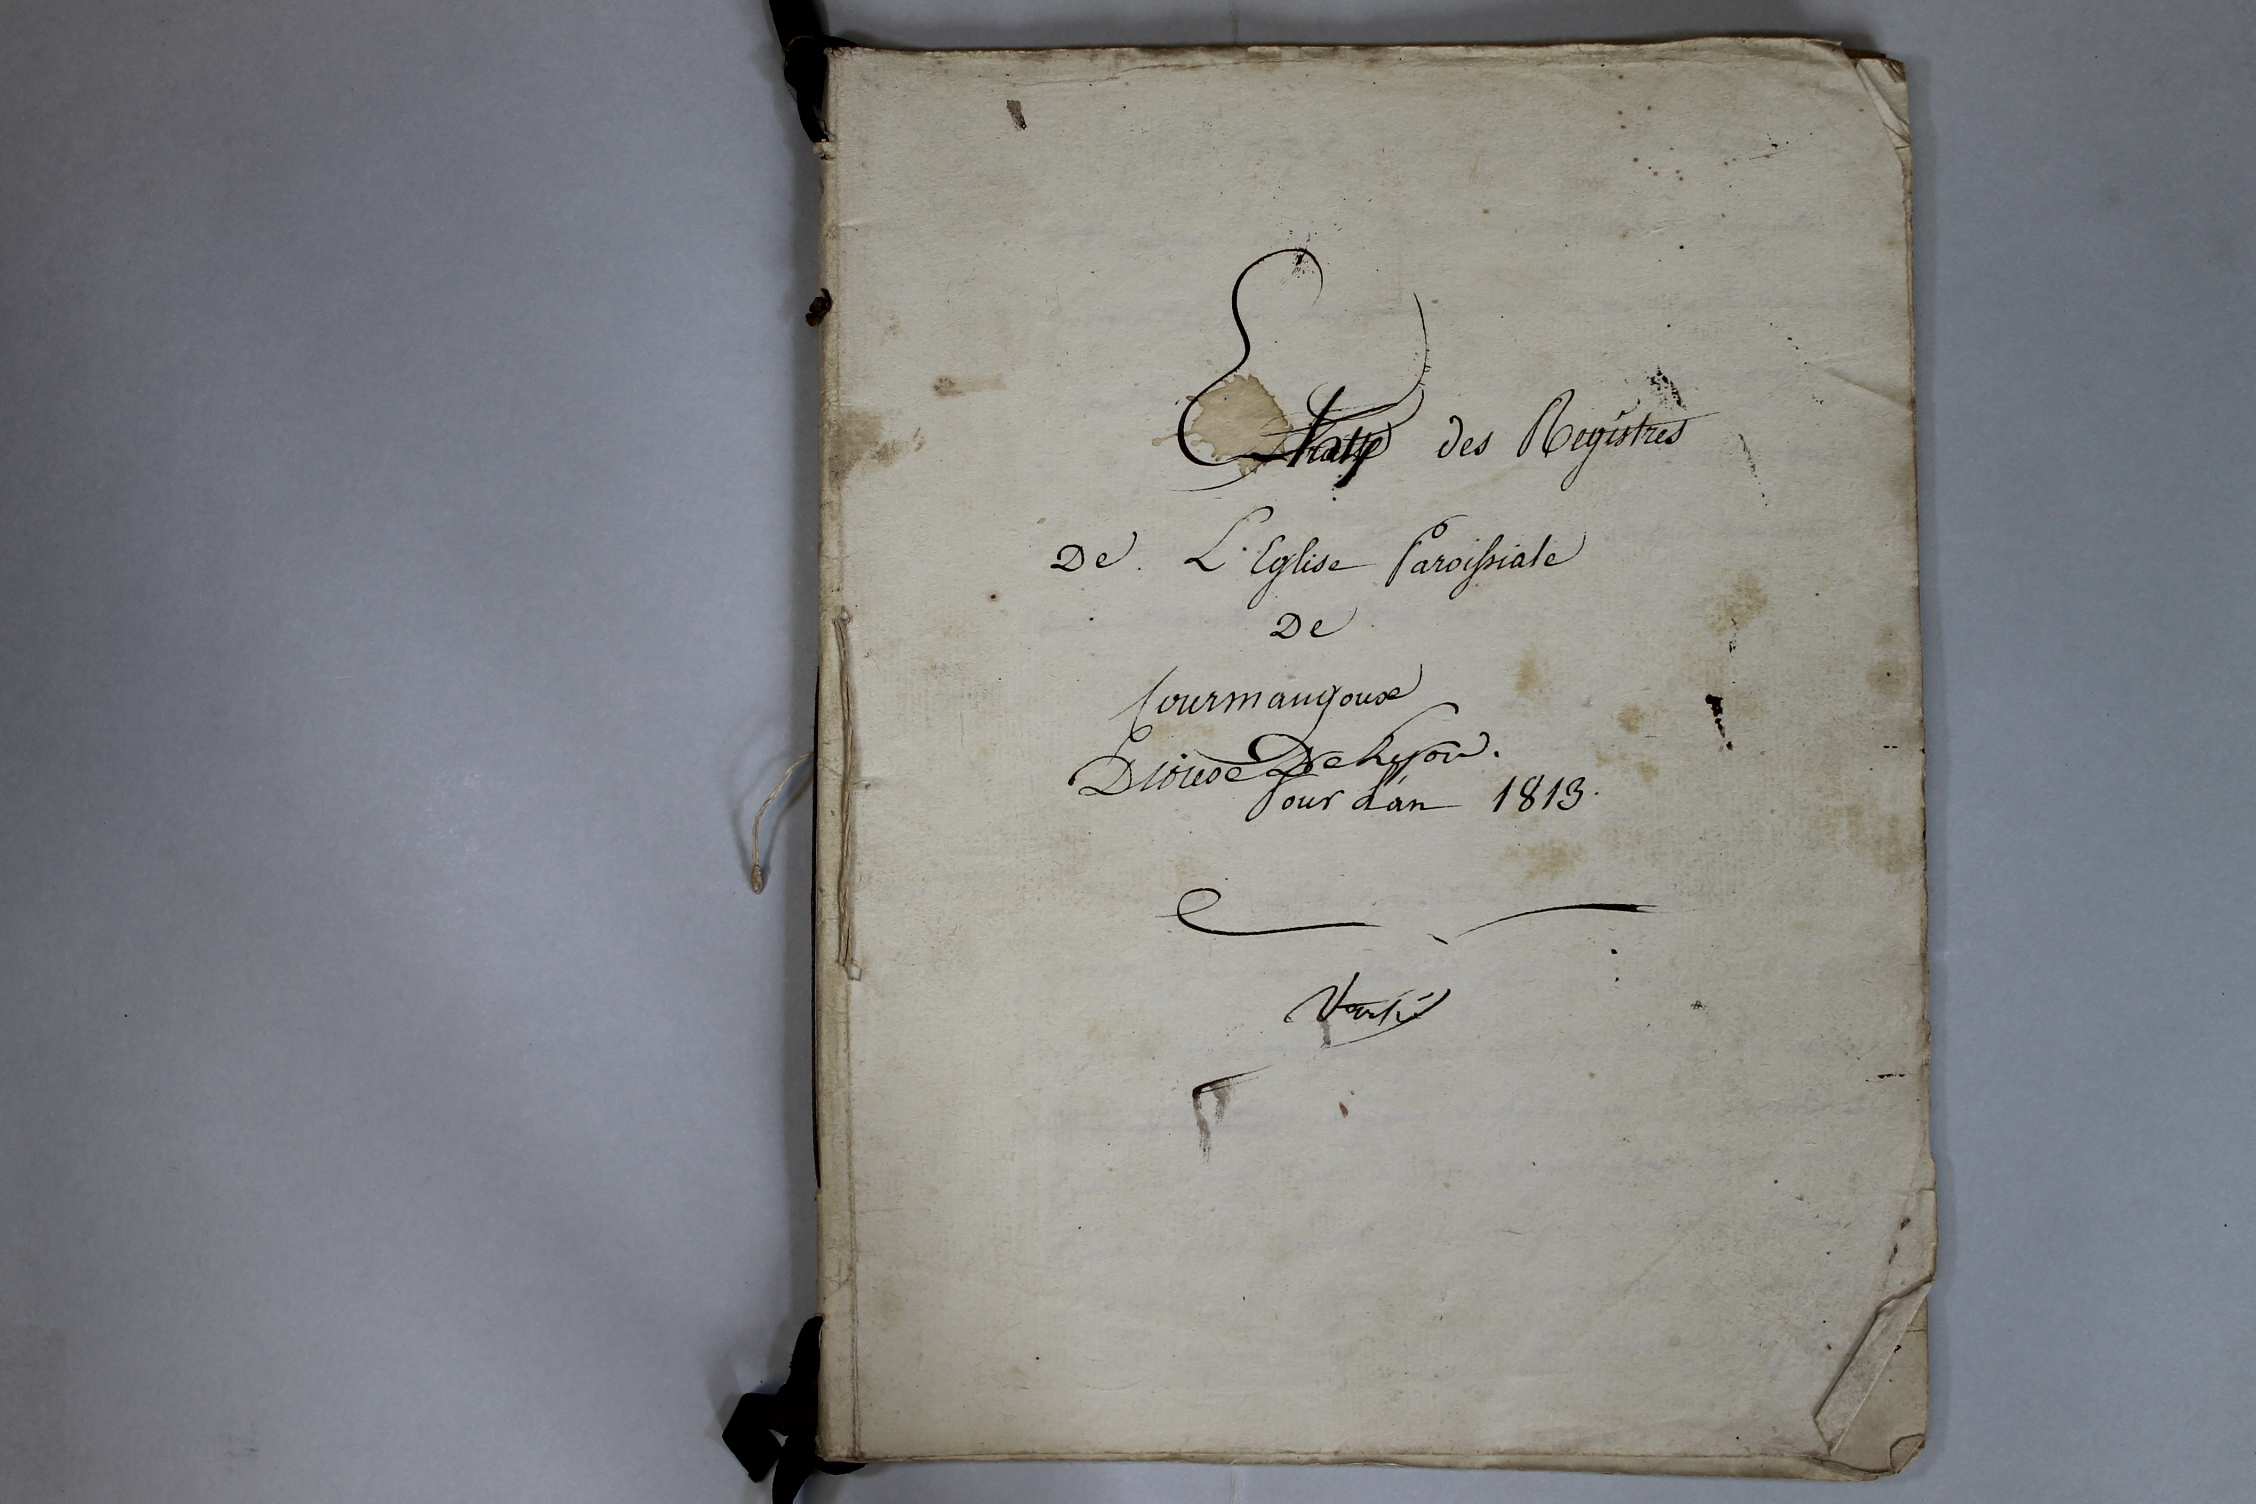 des Registres
De L'Eglise Paroissiale
De
Courmangoux
Diocese De Lyon.
Pour L'an 1813.